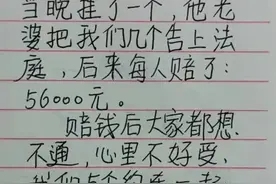 当晚摧了一个，他老
婆把我们几个告上法
庭，后来每人赔了：
56000元。
赔钱后大家都想
不通，心里不好受，